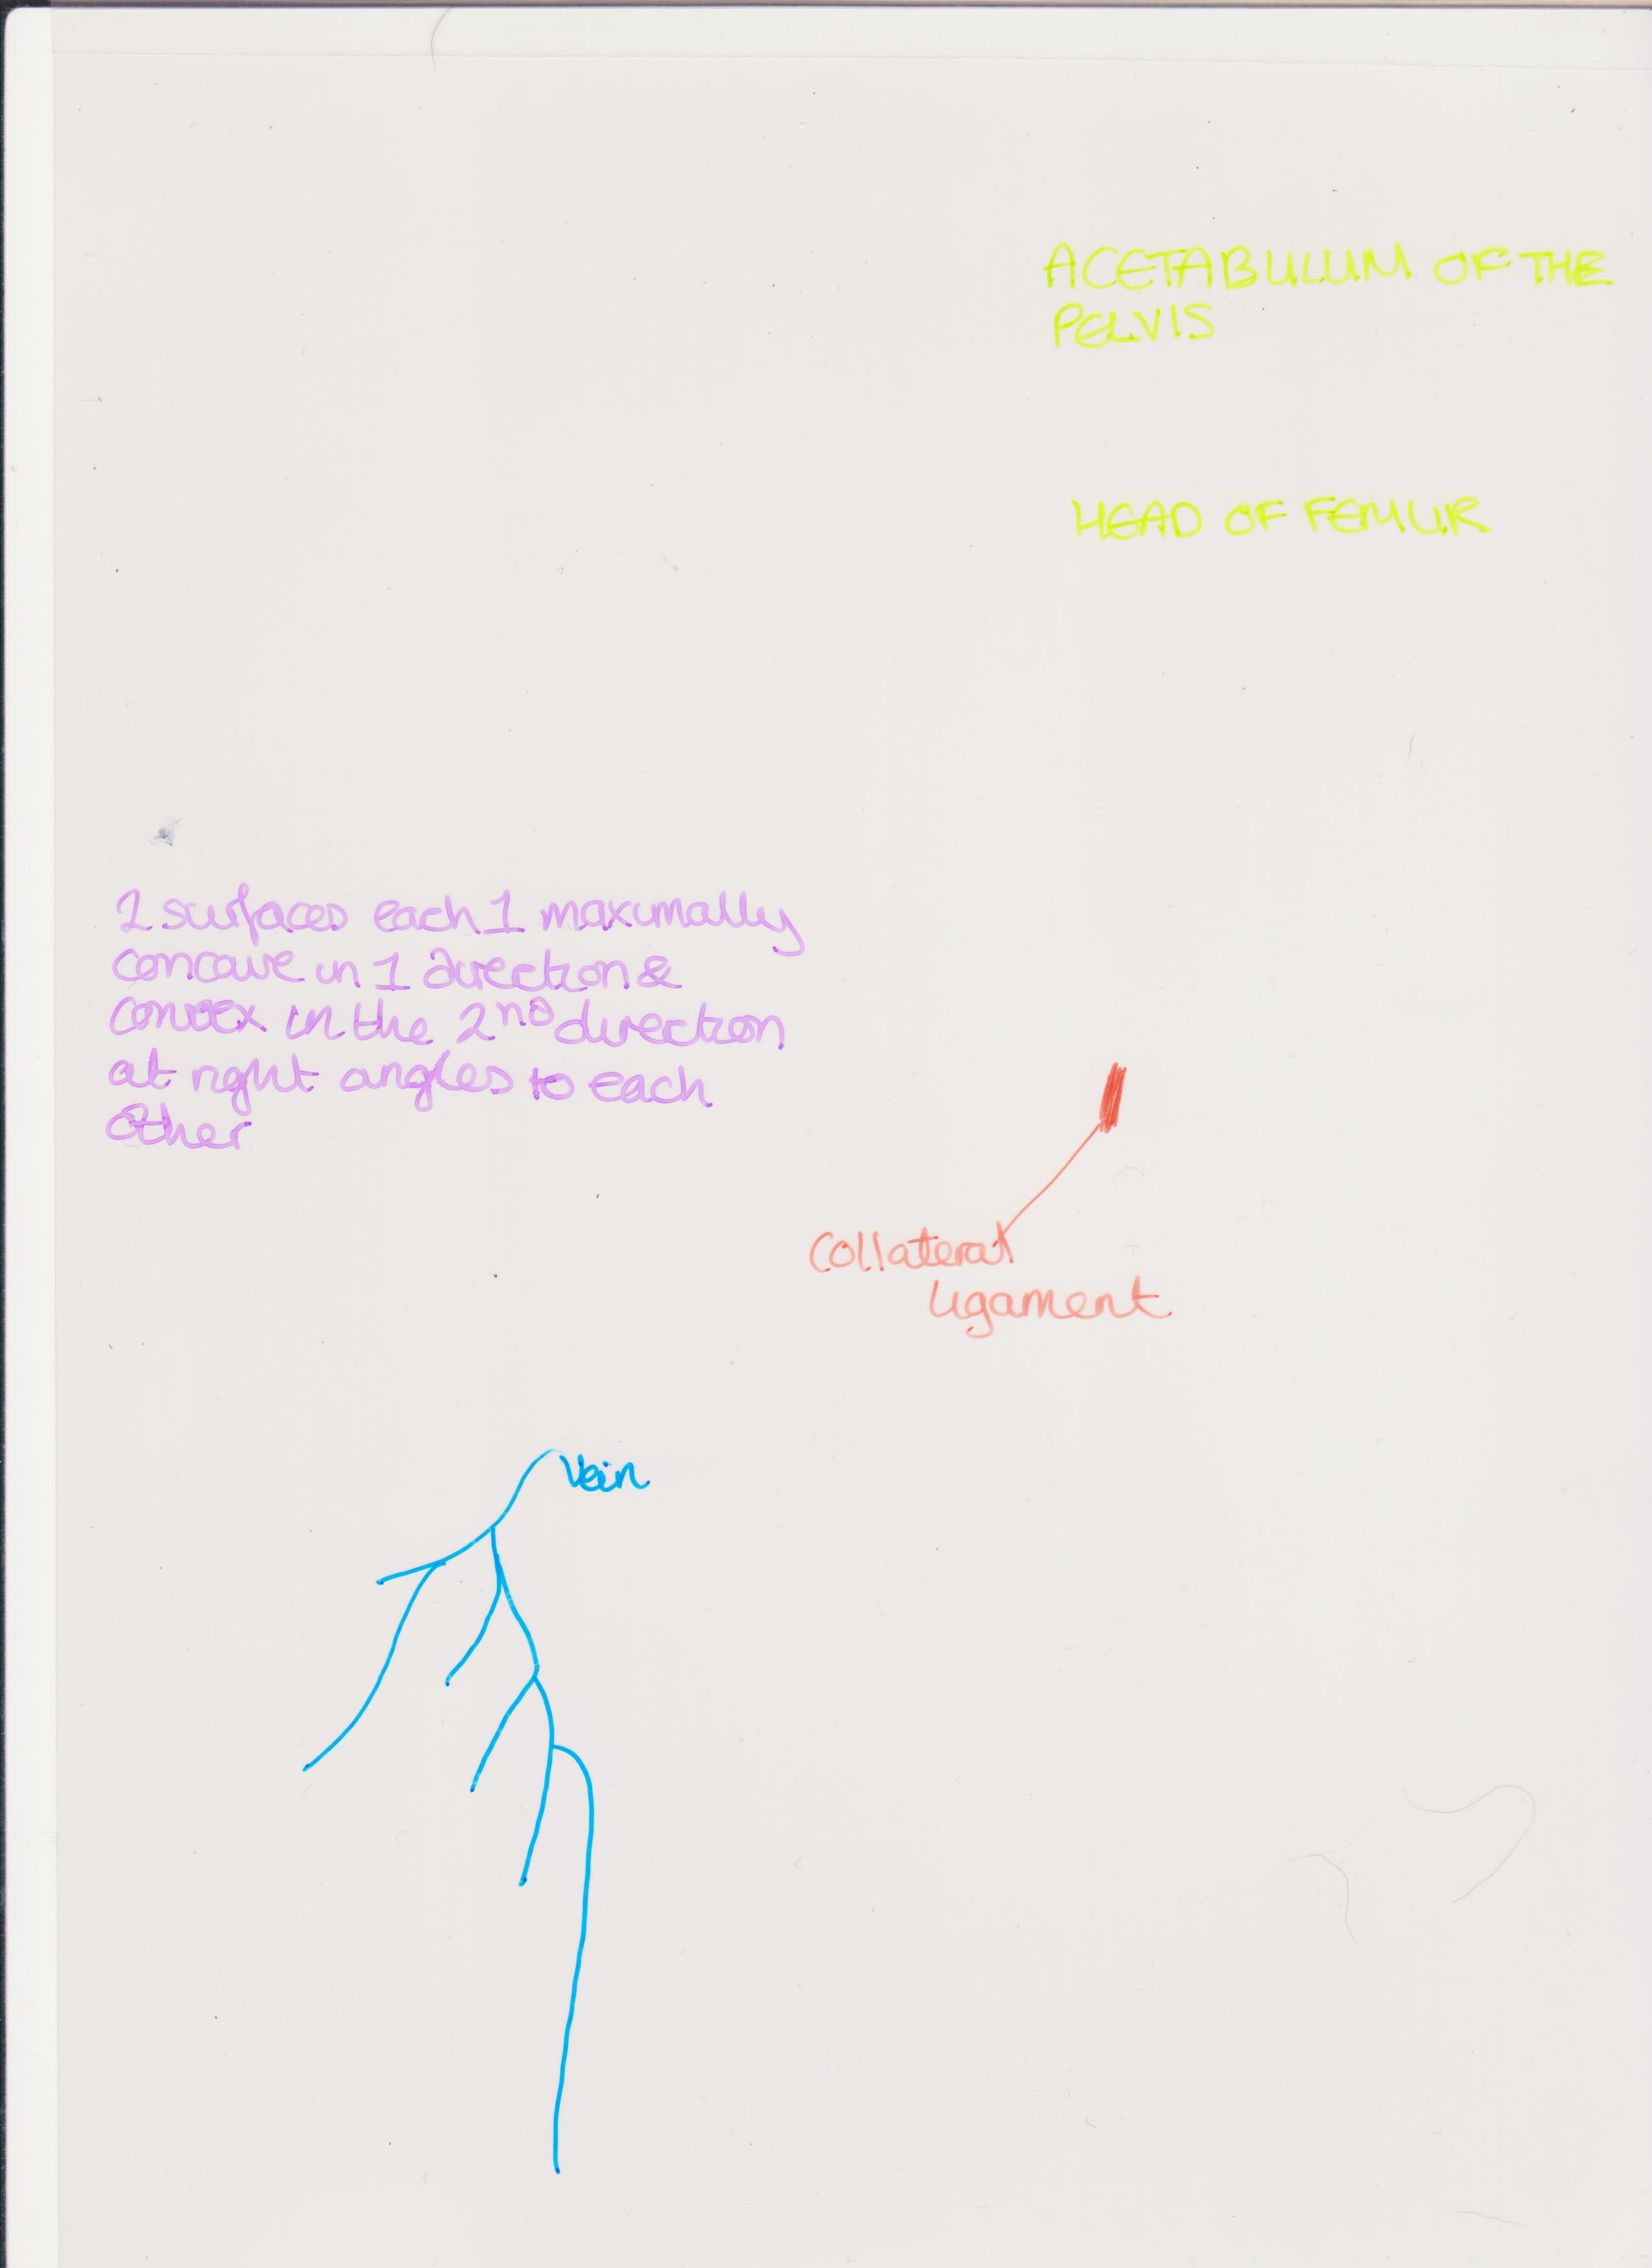 ACETABULUM OF THE
PELVIS
HEAD OF FEMUR
2 surfaces each 1 maximally
concave in 1 direction &
convex in the 2nd direction
at right angles to each
other
Collateral
ligament
Vein